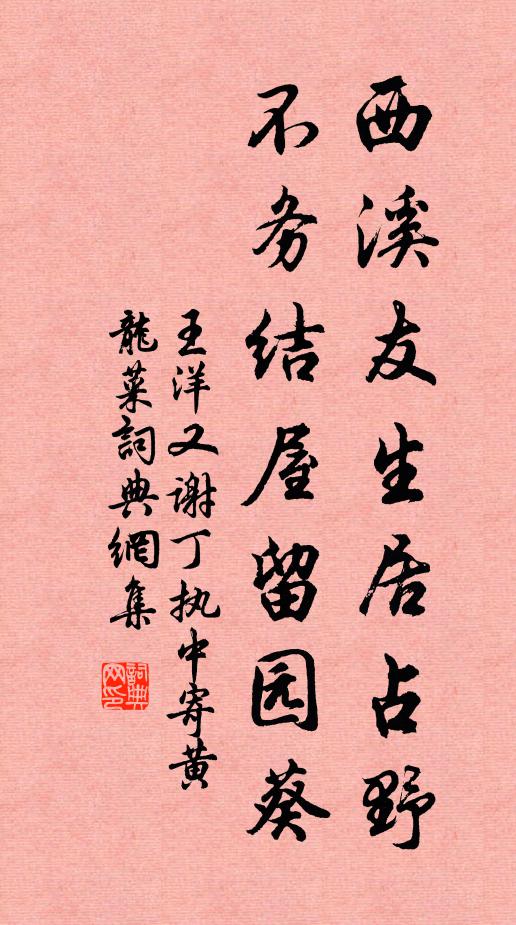 西溪友生居占野
不务结屋留园葵
王洋又谢丁执中寄黄
龍菜詞典網集
詞典网印